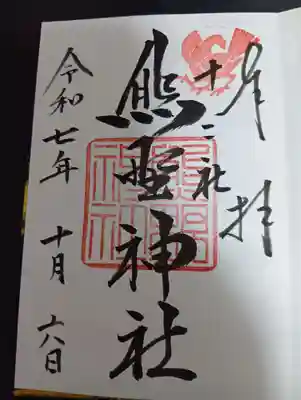 奉拝
十二社
熊野神社
令和七年 十月 六日